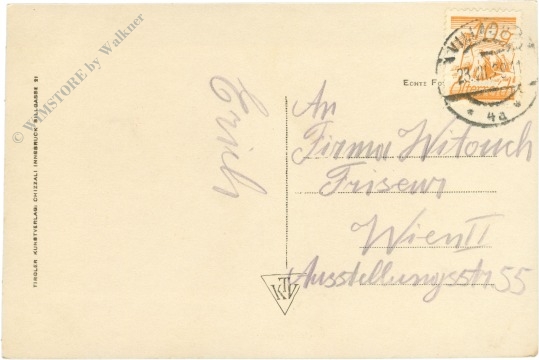 © WIMSTORE by Walkner
TIROLER KUNSTVERLAG CHIZZALI INNSBRUCK SILLGASSE 21
Erich
ECHTE
An
Firma Witouch
Friseur
Wien II
Ausstellungsstr 55
KTV
4a